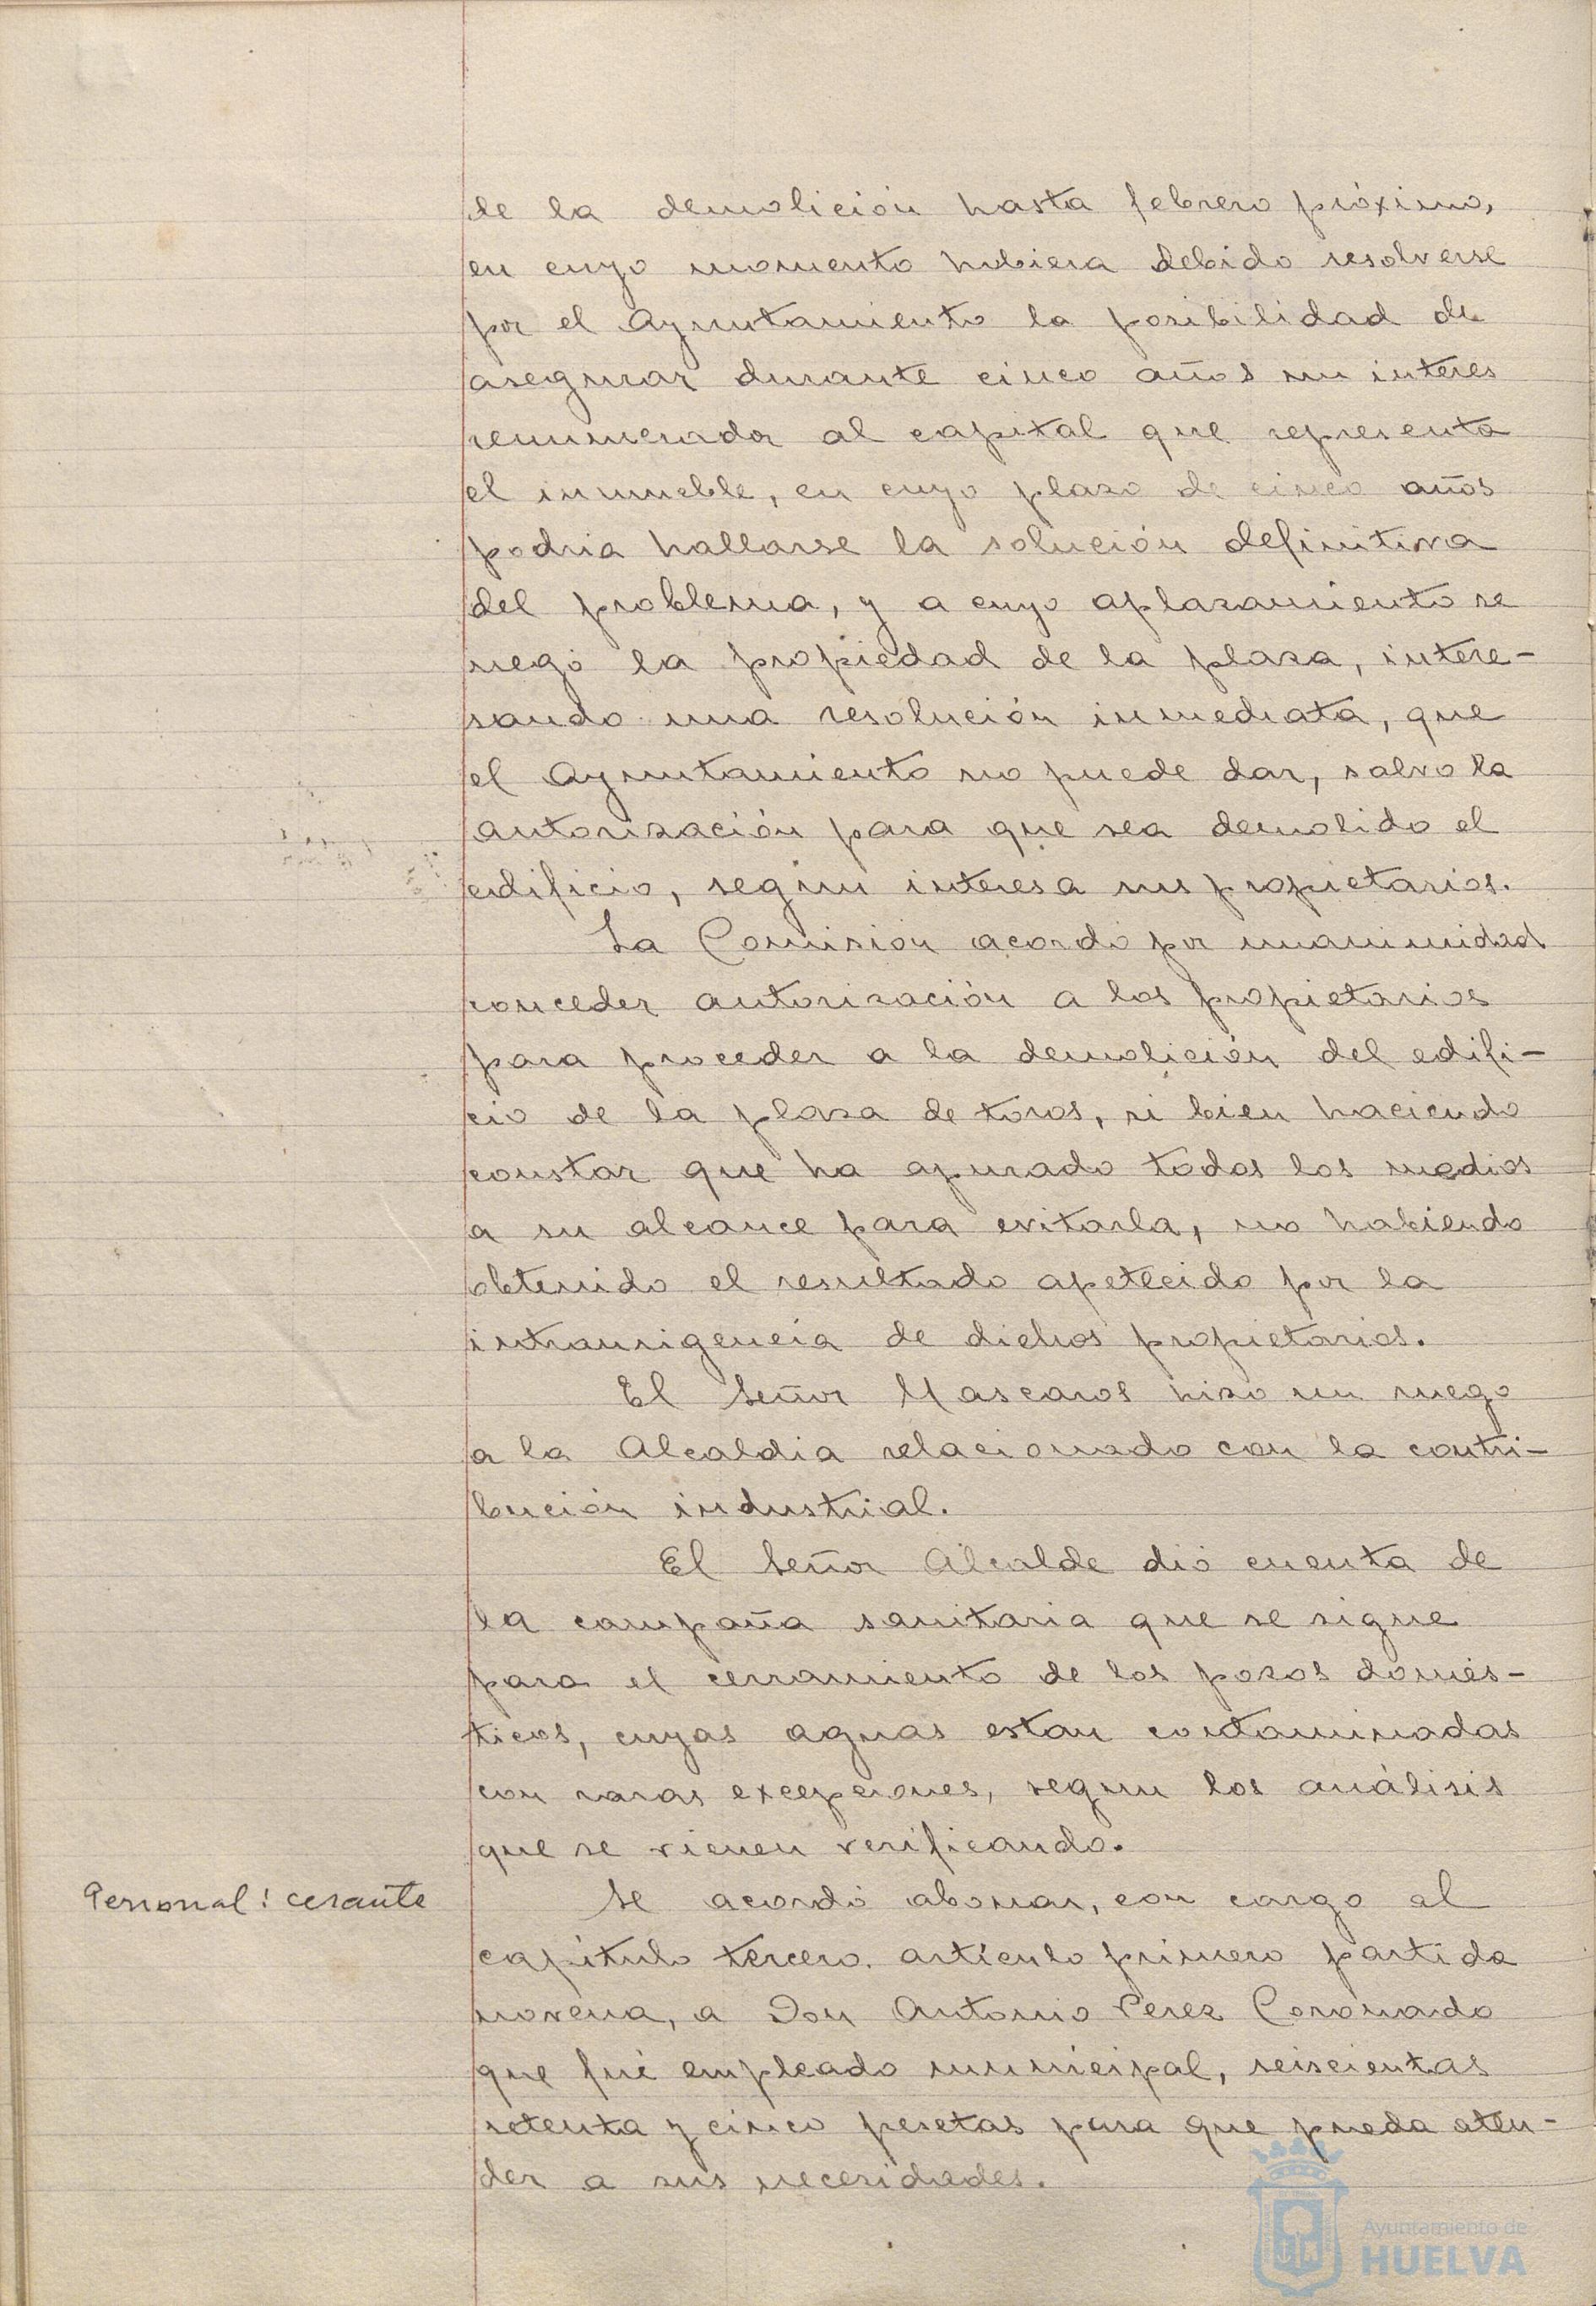 de la demolición hasta febrero próximo,
en cuyo momento hubiera debido resolverse
por el Ayuntamiento la posibilidad de
asegurar durante cinco años un interes
remunerador al capital que representa
el inmueble, en cuyo plazo de cinco años
podria hallarse la solución definitiva
del problema, y a cuyo aplazamiento se
negó la propiedad de la plaza, intere-
sando una resolución inmediata, que
el Ayuntamiento no puede dar, salvo la
autorización para que sea demolido el
edificio, segun interesa sus propietarios.
La Comisión acordó por unanimidad
conceder autorización a los propietarios
para proceder a la demolición del edifi-
cio de la plaza de toros, si bien haciendo
constar que ha apurado todos los medios
a su alcance para evitarla, no habiendo
obtenido el resultado apetecido por la
intransigencia de dichos propietarios.
El Señor Mascaros hizo un ruego
a la Alcaldia relacionado con la contri-
bución industrial.
El Señor Alcalde dió cuenta de
la campaña sanitaria que se sigue
para el cerramiento de los pozos domés-
ticos, cuyas aguas estan contaminadas
con raras excepciones, segun los análisis
que se vienen verificando.
Personal: cesante
Se acordó abonar, con cargo al
capítulo tercero, artículo primero partida
novena, a Don Antonio Perez Coronado
que fué empleado municipal, seiscientas
setenta y cinco pesetas para que pueda aten-
der a sus necesidades.
Ayuntamiento de
HUELVA